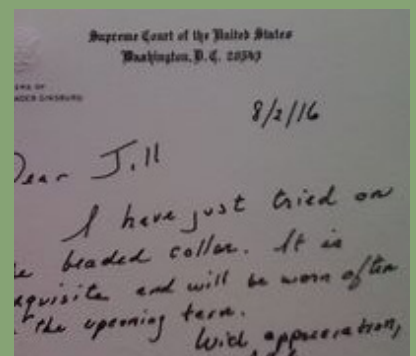 Supreme Court of the United States
Washington, D.C. 20543
BADER GINSBURG
8/2/16
Dear Jill
I have just tried on
beaded collar. It is
exquisite and will be worn often
the upcoming term.
With appreciation,